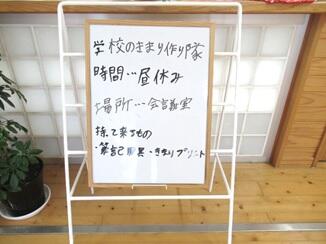 学校のきまり作り隊
時間…昼休み
場所…会議室
持って来るもの
・筆記用具・きまりプリント